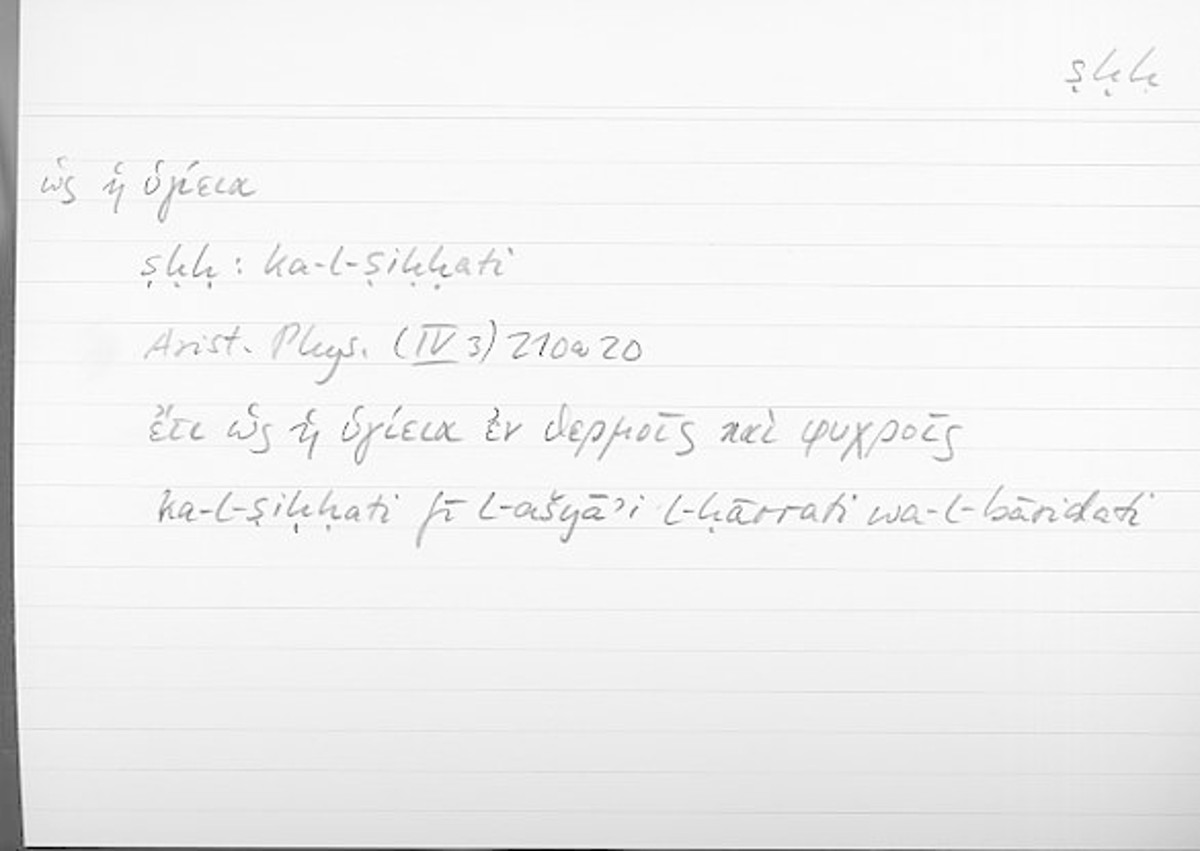 ṣḥḥ
ὡς ἡ ὑγίεια
ṣḥḥ : ka-l-ṣiḥḥati
Arist. Phys. (IV 3) 210a20
ἔτι ὡς ἡ ὑγίεια ἐν θερμοῖς καὶ ψυχροῖς
ka-l-ṣiḥḥati fī l-ašyāʾi l-ḥārrati wa-l-bāridati